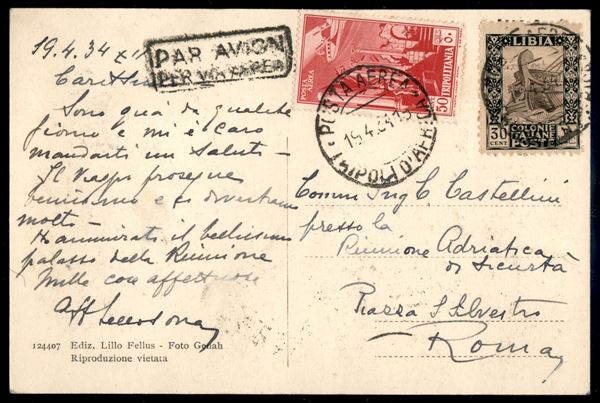 19.4.34 XII
PAR AVION
PER VIA AEREA
Sono qua da qualche
giorno e mi è caro
mandarti un saluto -
Il viaggio prosegue
benissimo e ci divertiamo
molto -
Ho ammirato il bellissimo
palazzo della Riunione
Mille cose affettuose
aff
124407 Ediz. Lillo Fellus - Foto Geuah
Riproduzione vietata
POSTA
AEREA
50
TRIPOLITANIA
POSTA AEREA
19.4.34.15
TRIPOLI D'AFRICA
LIBIA
30
CENT
COLONIE
ITALIANE
POSTE
Comm Ing C Castellini
presso la
Riunione Adriatica
di Sicurtà
Piazza S Silvestro
Roma